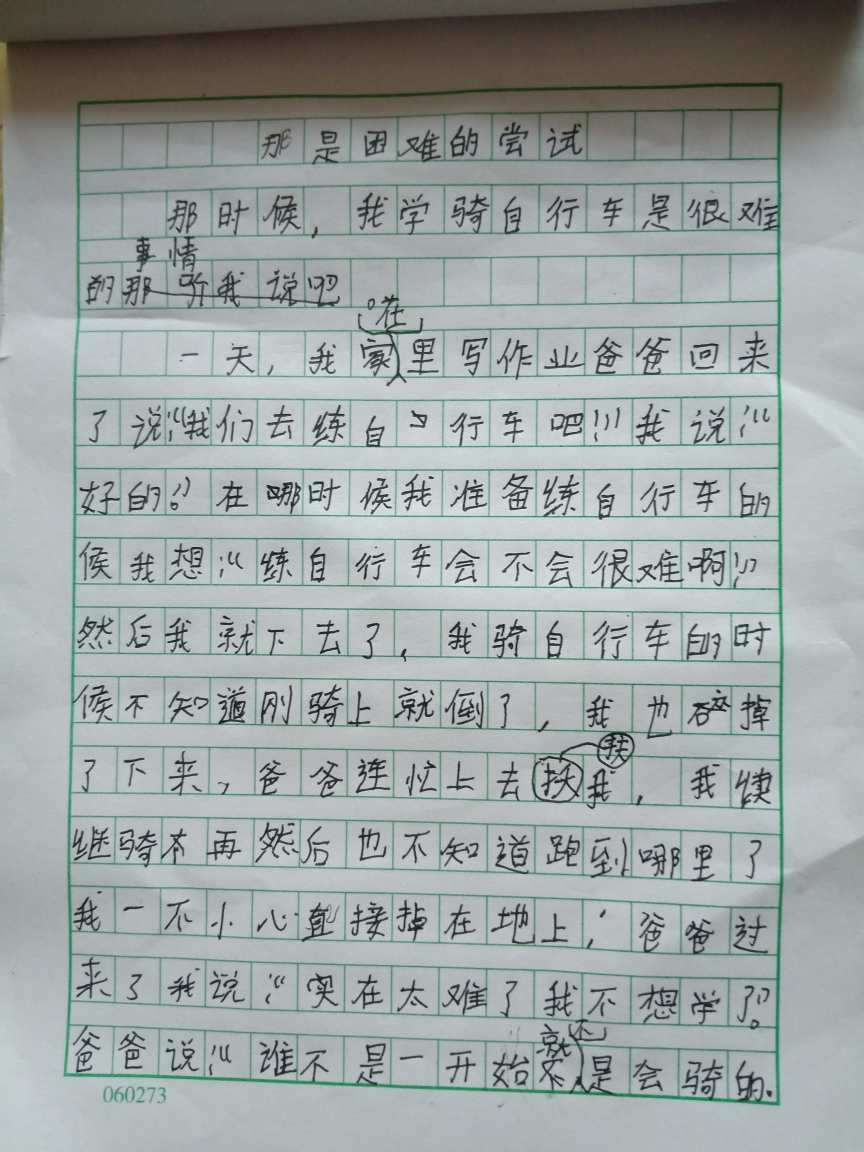 那是困难的尝试
那时候,我学骑自行车是很难
事情
的那听我说吧
在
一天,我家里写作业爸爸回来
了说:“我们去练自行车吧!”我说:“
好的!”在哪时候我准备练自行车的
候我想:“练自行车会不会很难啊!”
然后我就下去了,我骑自行车的时
候不知道刚骑上就倒了,我也碎掉
扶
了下来,爸爸连忙上去扶我,我续
继骑本再然后也不知道跑到哪里了
我一不小心直接掉在地上,爸爸过
来了我说:“实在太难了我不想学了”。
就不
爸爸说:“谁不是一开始是会骑的.
060273